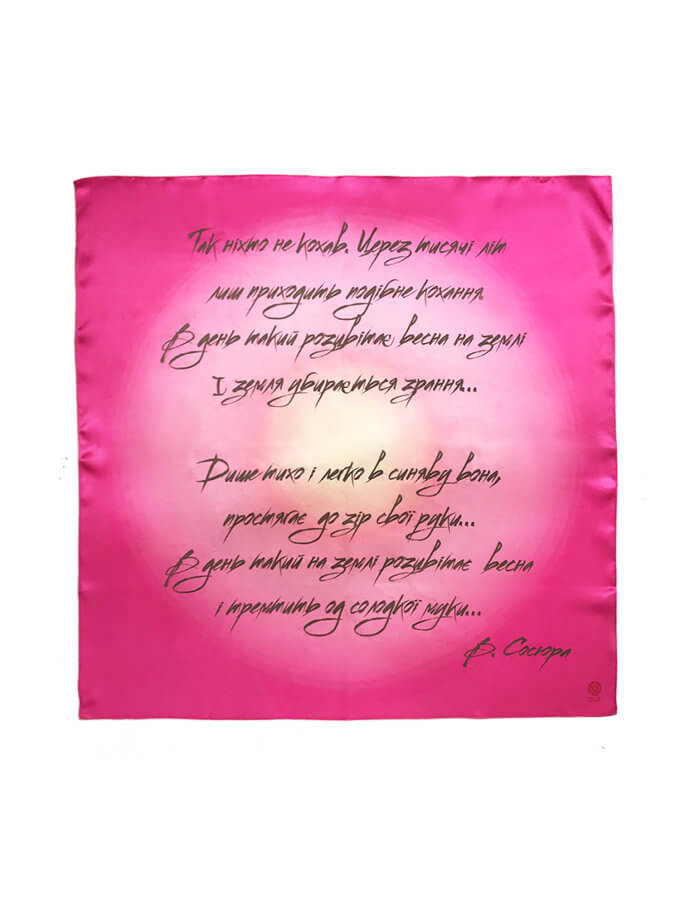 Так ніхто не кохав. Через тисячі літ
лиш приходить подібне кохання.
В день такий розцвітає весна на землі
І земля убирається зрання...
Дише тихо і легко в синяву вона,
простягає до зір свої руки...
В день такий на землі розцвітає весна
і тремтить од солодкої муки...
В. Сосюра